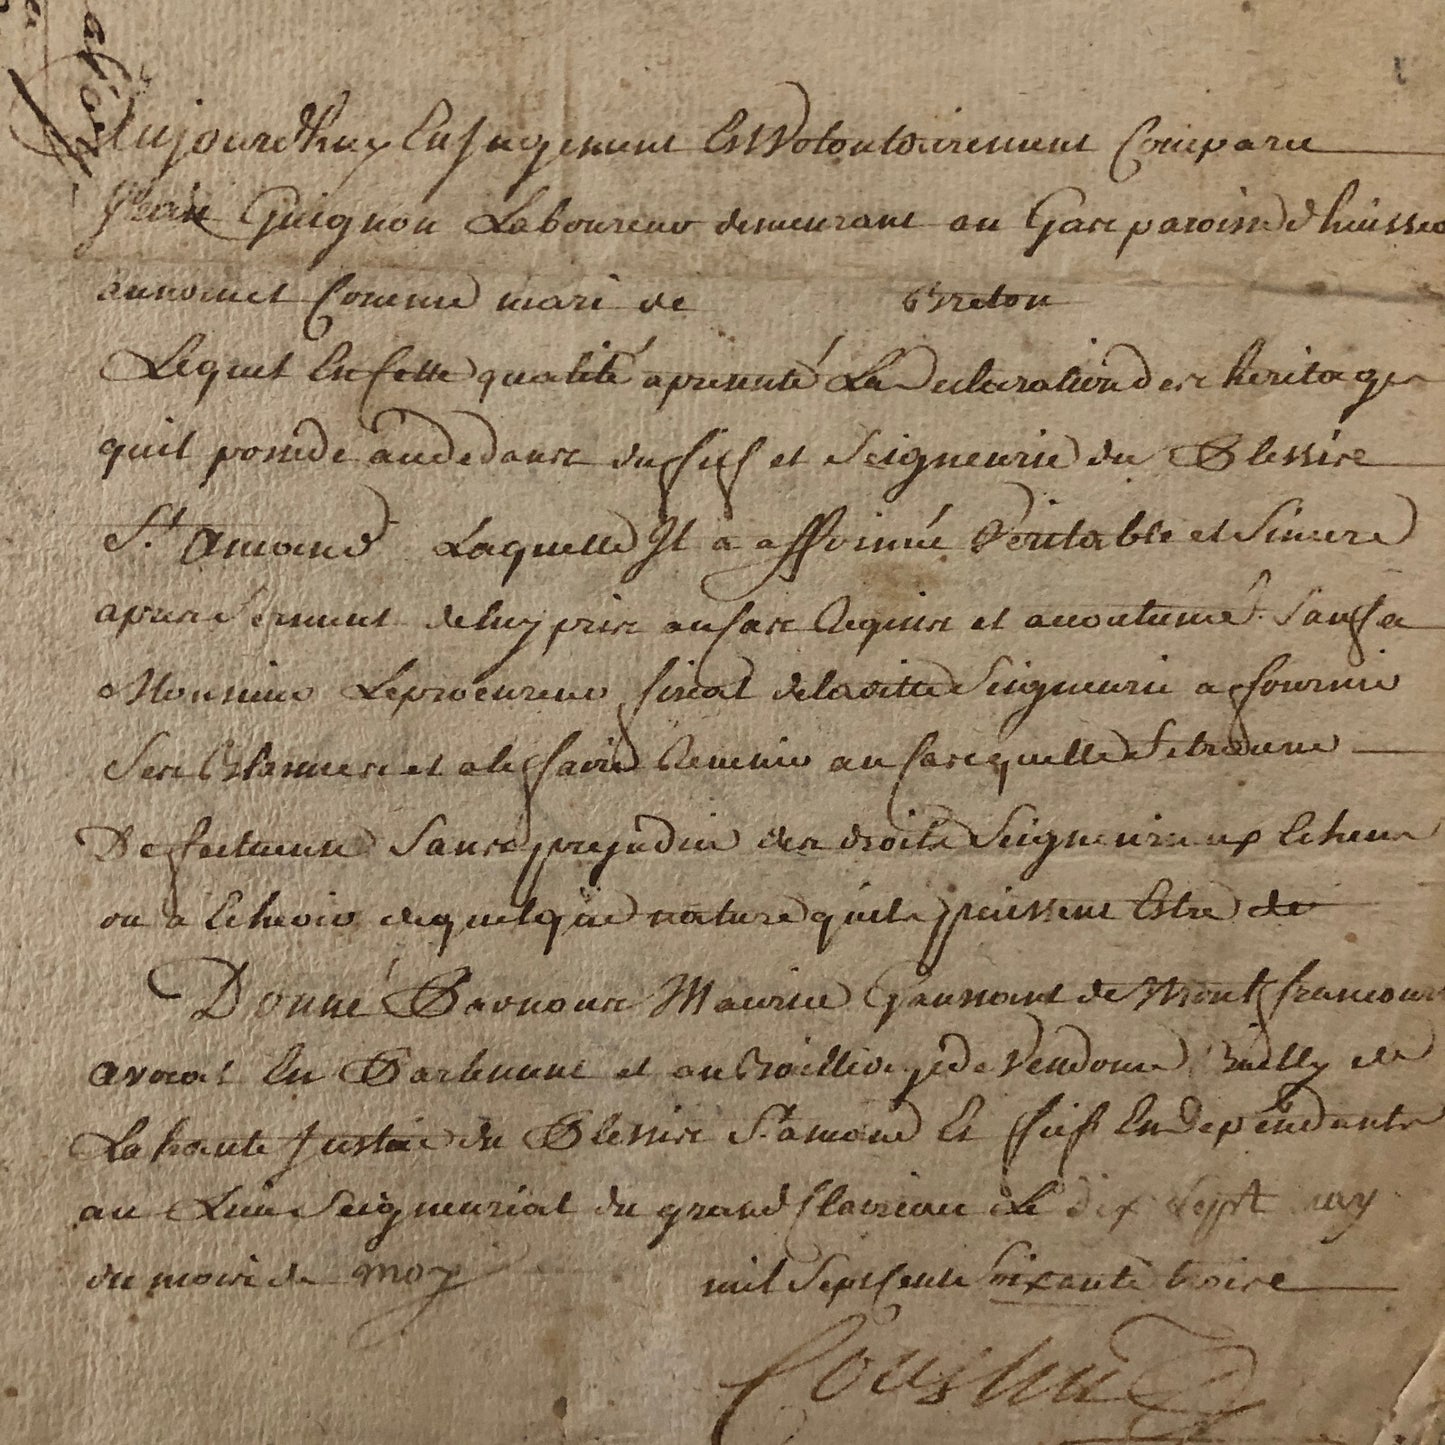 Aujourdhuy En Jugement Est Volontairement Comparu
Jean Guignon Laboureur demeurant au Gas paroisse d huisseau
au nom et Comme mari de Breton
Lequel En Cette qualité a presenté La Declaration des heritages
quil possede au dedans du fief et Seigneurie du Plessis
St. Amand Laquelle Il a affirmé Veritable et Sincere
apres Serment de luy pris au Cas Requis et accoutumé. Sauf a
Monsieur Le procureur fiscal de laditte Seigneurie a fournir
Ses Blasmes et a le faire Revenir au Cas quelle Se trouve
Deffectueuse Sans prejudice des droits Seigneuriaux Echeus
ou a Echeoir de quelque nature quils puissent Estre de
Donné Par nous Maurice de Montfrancour
avocat En Parlement et au Bailliage de Vendome Bailly de
La haute Justice du Plessis St amand Et fiefs En dependants
au Lieu Seigneurial du grand le dix Sept
du mois de may mil Sept Cents Soixante trois